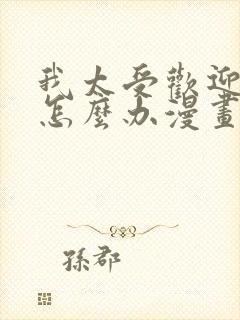 我太受歡迎
怎麼办漫畫
孫郡